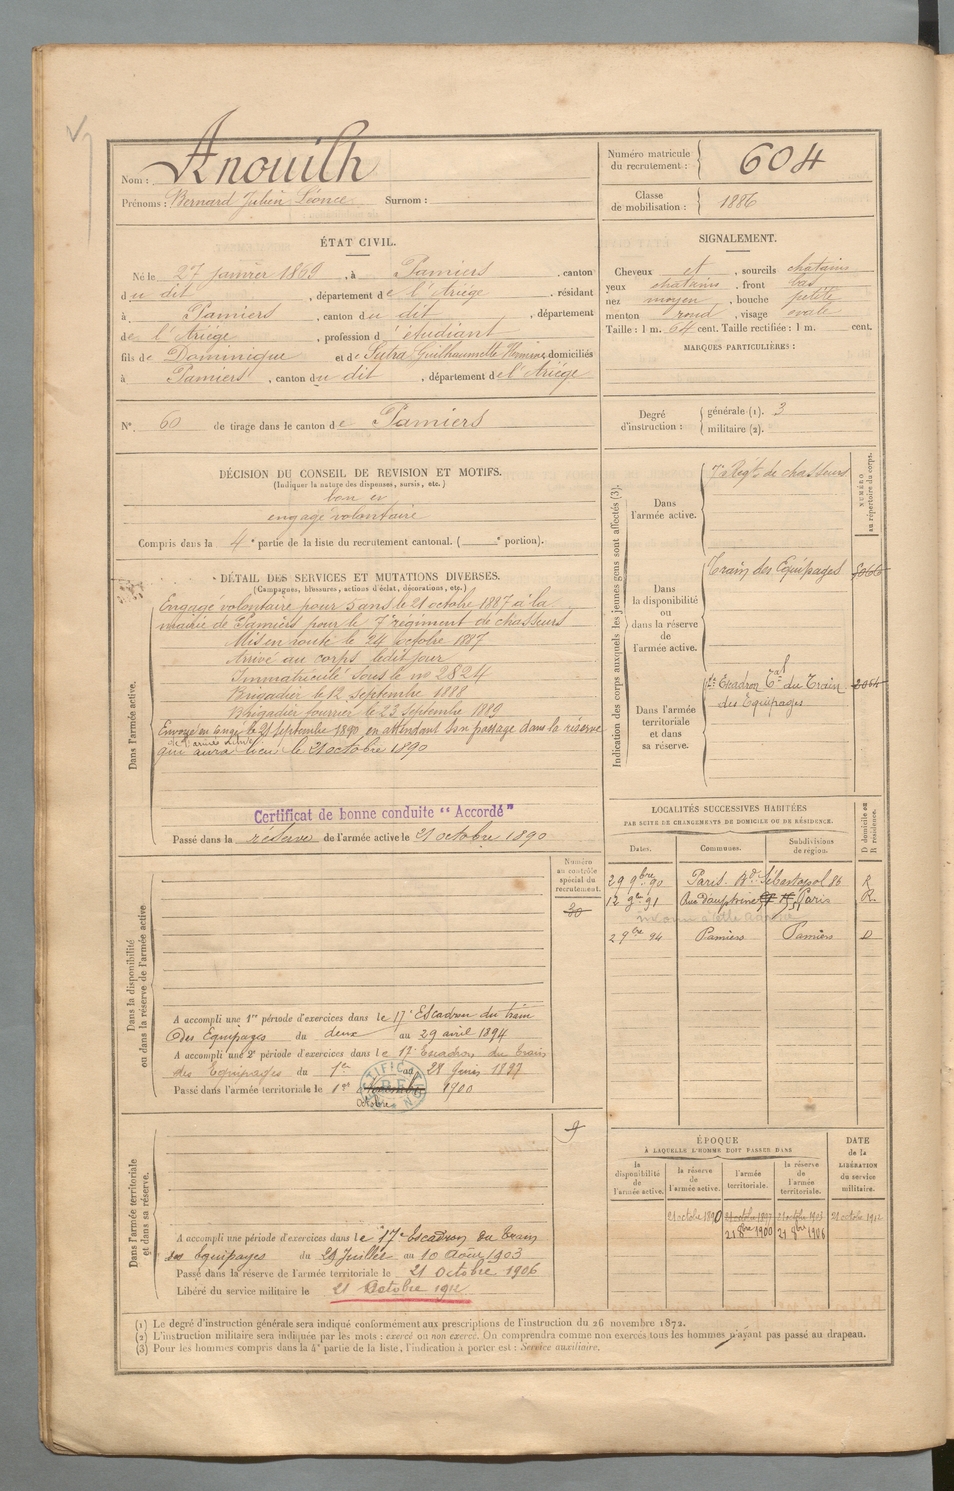 Nom : Anouilh
Prénoms : Bernard Julien Léonce Surnom :
Numéro matricule du recrutement : 604
Classe de mobilisation : 1886
ÉTAT CIVIL.
Né le 27 janvier 1869, à Pamiers, canton
du dit, département de l'Ariége, résidant
à Pamiers, canton du dit, département
de l'Ariége, profession d'étudiant
fils de Dominique et de Sutra Guilhaumette domiciliés
à Pamiers, canton du dit, département de l'Ariége
SIGNALEMENT.
Cheveux et, sourcils chatains
yeux chatains, front bas
nez moyen, bouche petite
menton rond, visage ovale
Taille : 1 m. 64 cent. Taille rectifiée : 1 m. cent.
MARQUES PARTICULIÈRES :
N° 60 de tirage dans le canton de Pamiers
Degré d'instruction : générale (1). 3
militaire (2).
DÉCISION DU CONSEIL DE REVISION ET MOTIFS.
(Indiquer la nature des dispenses, sursis, etc.)
bon
engagé volontaire
Compris dans la 4e partie de la liste du recrutement cantonal. ( e portion).
DÉTAIL DES SERVICES ET MUTATIONS DIVERSES.
(Campagnes, blessures, actions d'éclat, décorations, etc.)
Dans l'armée active.
Engagé volontaire pour 5 ans le 21 octobre 1887 à la
mairie de Pamiers pour le 7e régiment de chasseurs
Mis en route le 24 octobre 1887
Arrivé au corps ledit jour
Immatriculé sous le no 2824
Brigadier le 12 septembre 1888
Brigadier fourrier le 23 septembre 1889
Envoyé en congé le 21 septembre 1890 en attendant son passage dans la réserve
de l'armée active
qui aura lieu le 21 octobre 1890
Certificat de bonne conduite "Accordé"
Passé dans la réserve de l'armée active le 21 octobre 1890
Indication des corps auxquels les jeunes gens sont affectés (3).
NUMÉRO au répertoire du corps.
Dans l'armée active.
7e Régt de chasseurs
Dans la disponibilité ou dans la réserve de l'armée active.
Train des Equipages
Dans l'armée territoriale et dans sa réserve.
Escadron du Train
des Equipages
LOCALITÉS SUCCESSIVES HABITÉES
PAR SUITE DE CHANGEMENTS DE DOMICILE OU DE RÉSIDENCE.
Dates. Communes. Subdivisions de région. D domicile ou R résidence.
29 9bre 90 Paris. Bd Sébastopol 86 R
12 91 Rue Dauphine Paris R.
2 9bre 94 Pamiers Pamiers D
Dans la disponibilité ou dans la réserve de l'armée active
Numéro au contrôle spécial du recrutement.
30
A accompli une 1re période d'exercices dans le 17e Escadron du train
des Equipages du deux au 29 avril 1894
A accompli une 2e période d'exercices dans le 17e Escadron du train
des Equipages du 1er au 28 1897
Passé dans l'armée territoriale le 1er 1900
octobre
Dans l'armée territoriale et dans sa réserve.
A accompli une période d'exercices dans le 17e Escadron du train
des Equipages du 29 Juillet au 10 Août 1903
Passé dans la réserve de l'armée territoriale le 21 Octobre 1906
Libéré du service militaire le 21 Octobre 1912
ÉPOQUE
À LAQUELLE L'HOMME DOIT PASSER DANS
la disponibilité de l'armée active. la réserve de l'armée active. l'armée territoriale. la réserve de l'armée territoriale.
DATE de la LIBÉRATION du service militaire.
21 octobre 1890 21 octobre 1897 21 octobre 1903 21 octobre 1912
21 8bre 1900 21 8bre 1906
(1) Le degré d'instruction générale sera indiqué conformément aux prescriptions de l'instruction du 26 novembre 1872.
(2) L'instruction militaire sera indiquée par les mots : exercé ou non exercé. On comprendra comme non exercés tous les hommes n'ayant pas passé au drapeau.
(3) Pour les hommes compris dans la 4e partie de la liste, l'indication à porter est : Service auxiliaire.